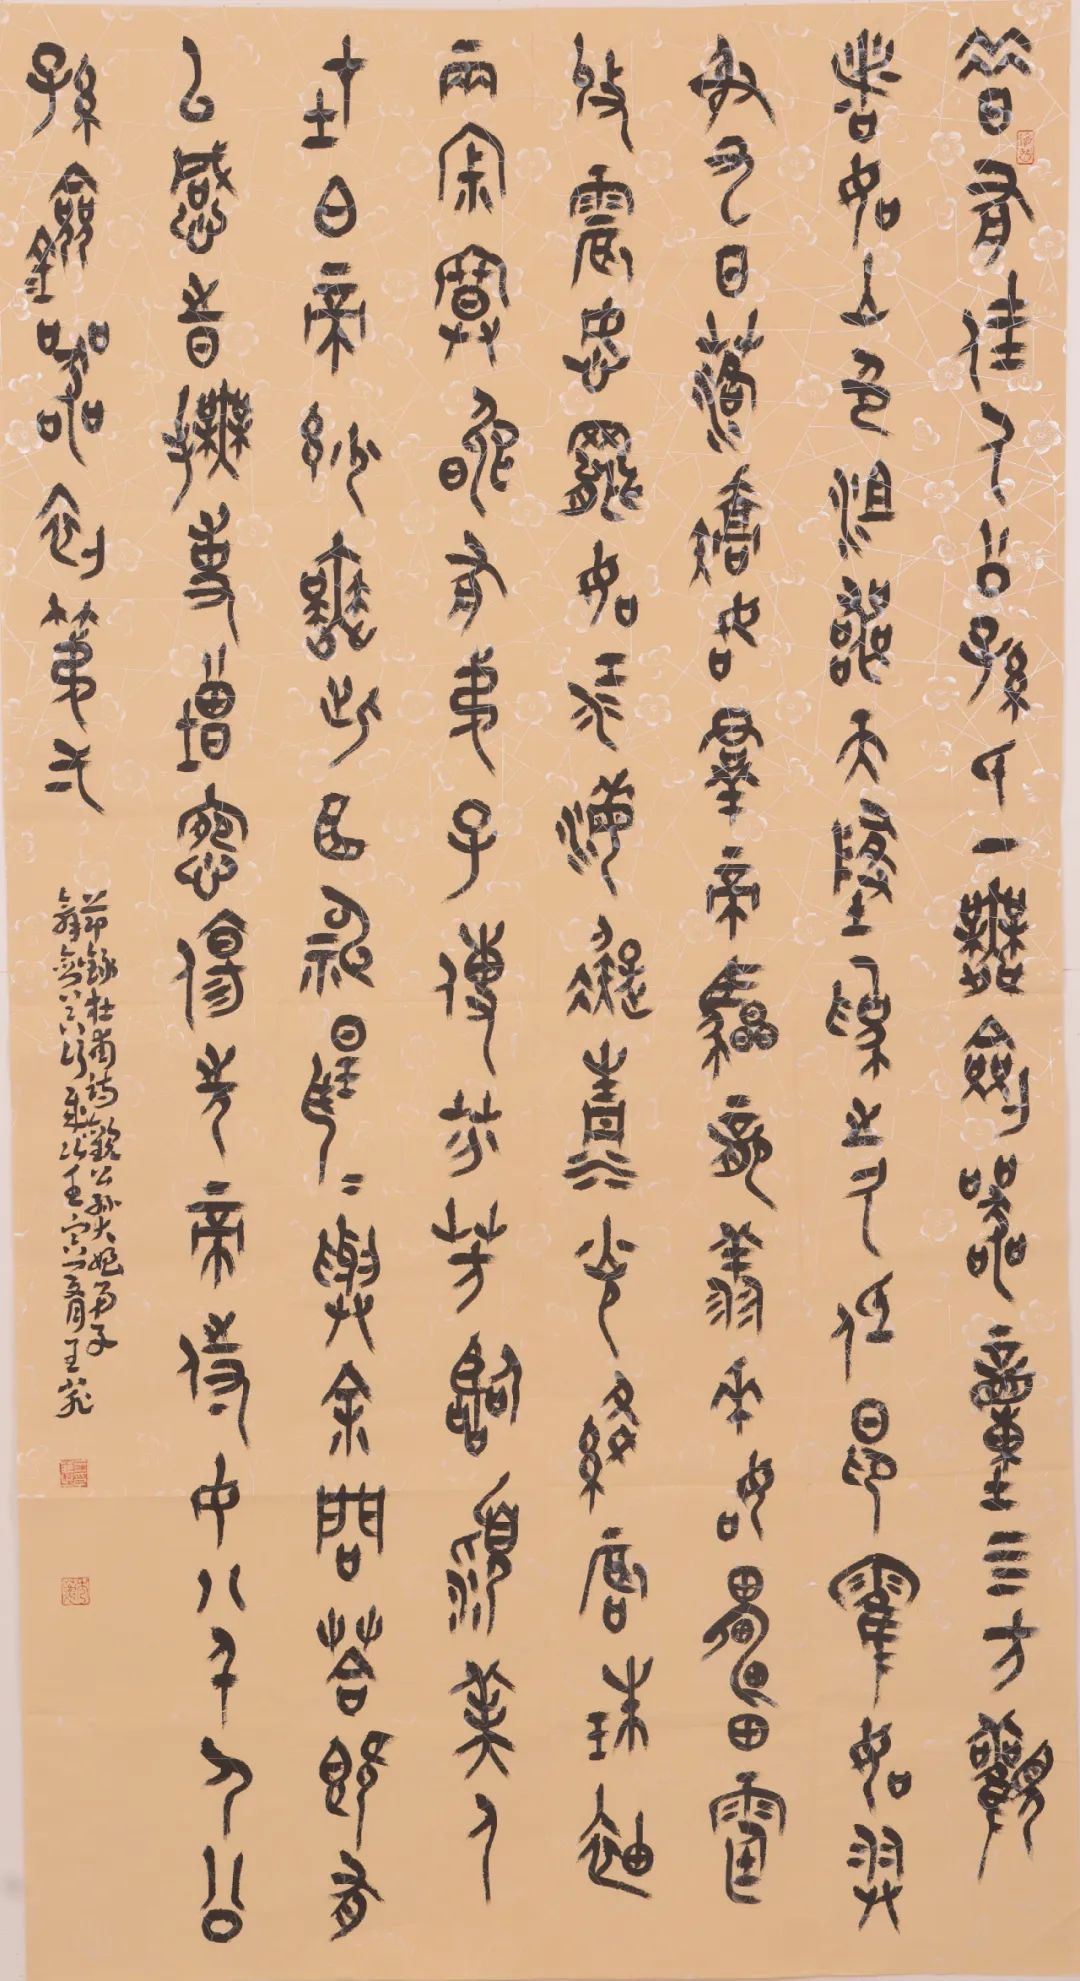 昔有佳人公孫氏一舞劍器動四方觀
者如山色沮喪天地為之久低昂霍如羿
射九日落矯如羣帝驂龍翔來如雷霆
收震怒罷如江海凝清光絳唇珠袖
兩寂寞晚有弟子傳芬芳臨潁美人
在白帝妙舞此曲神揚揚與余問答既有
以感時撫事增惋傷先帝侍女八千人公
孫劍器初第一
節錄杜甫詩觀公孫大娘弟子
舞劍器行歲次壬寅